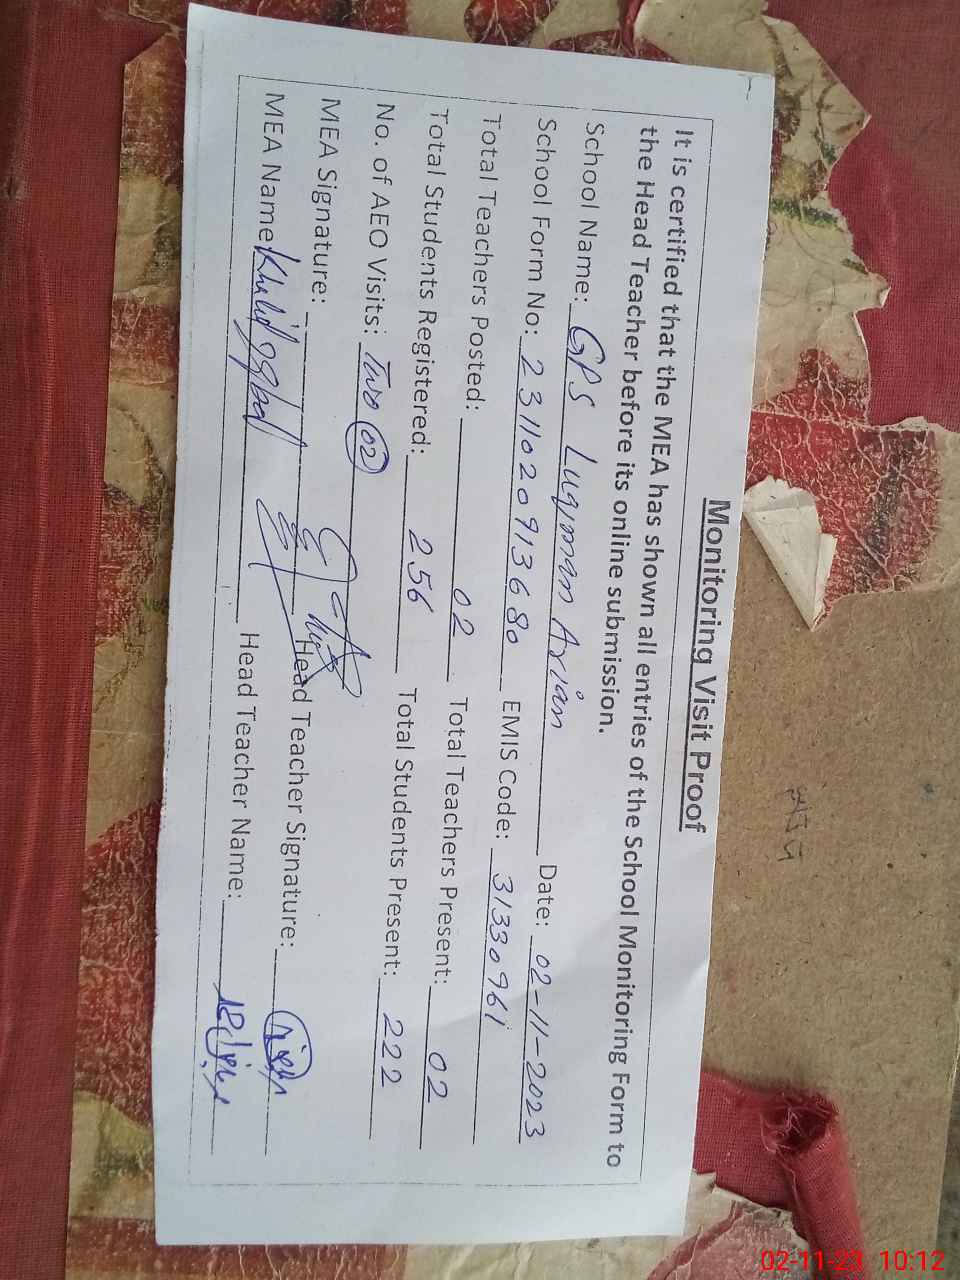 Monitoring Visit Proof
It is certified that the MEA has shown all entries of the School Monitoring Form to
the Head Teacher before its online submission.
School Name: GPS Luqman Arian Date: 02-11-2023
School Form No: 2311020913680 EMIS Code: 31330961
Total Teachers Posted: 02 Total Teachers Present: 02
Total Students Registered: 256 Total Students Present: 222
No. of AEO Visits: Two 02
MEA Signature: Head Teacher Signature:
MEA Name Khalid Iqbal Head Teacher Name:
02-11-23 10:12